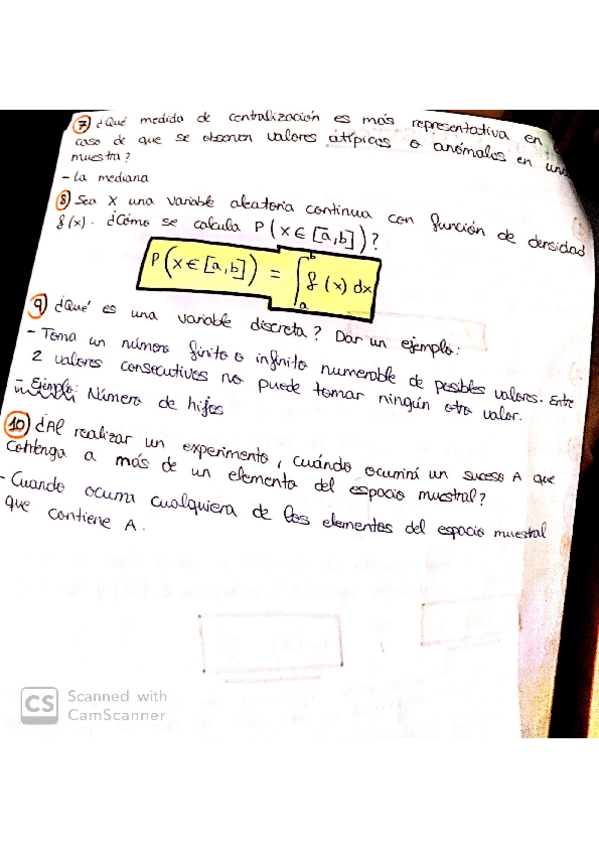 7) ¿Qué medida de centralización es más representativa en
caso de que se observen valores atípicos o anómalos en una
muestra?
- La mediana
8) Sea X una variable aleatoria continua con función de densidad
f(x). ¿Cómo se calcula P(x ∈ [a,b])?
P(x ∈ [a,b]) = ∫_a^b f(x) dx
9) ¿Qué es una variable discreta? Dar un ejemplo:
- Toma un número finito o infinito numerable de posibles valores. Entre
2 valores consecutivos no puede tomar ningún otro valor.
- Ejemplo: Número de hijos
10) ¿Al realizar un experimento, cuándo ocurrirá un suceso A que
contenga a más de un elemento del espacio muestral?
- Cuando ocurra cualquiera de los elementos del espacio muestral
que contiene A.
CS Scanned with
CamScanner